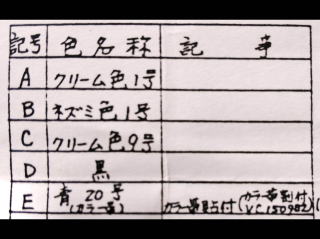 記号 色名称 記事
A クリーム色1号
B ネズミ色1号
C クリーム色9号
D 黒
E 青20号
(カラー帯) カラー帯貼付